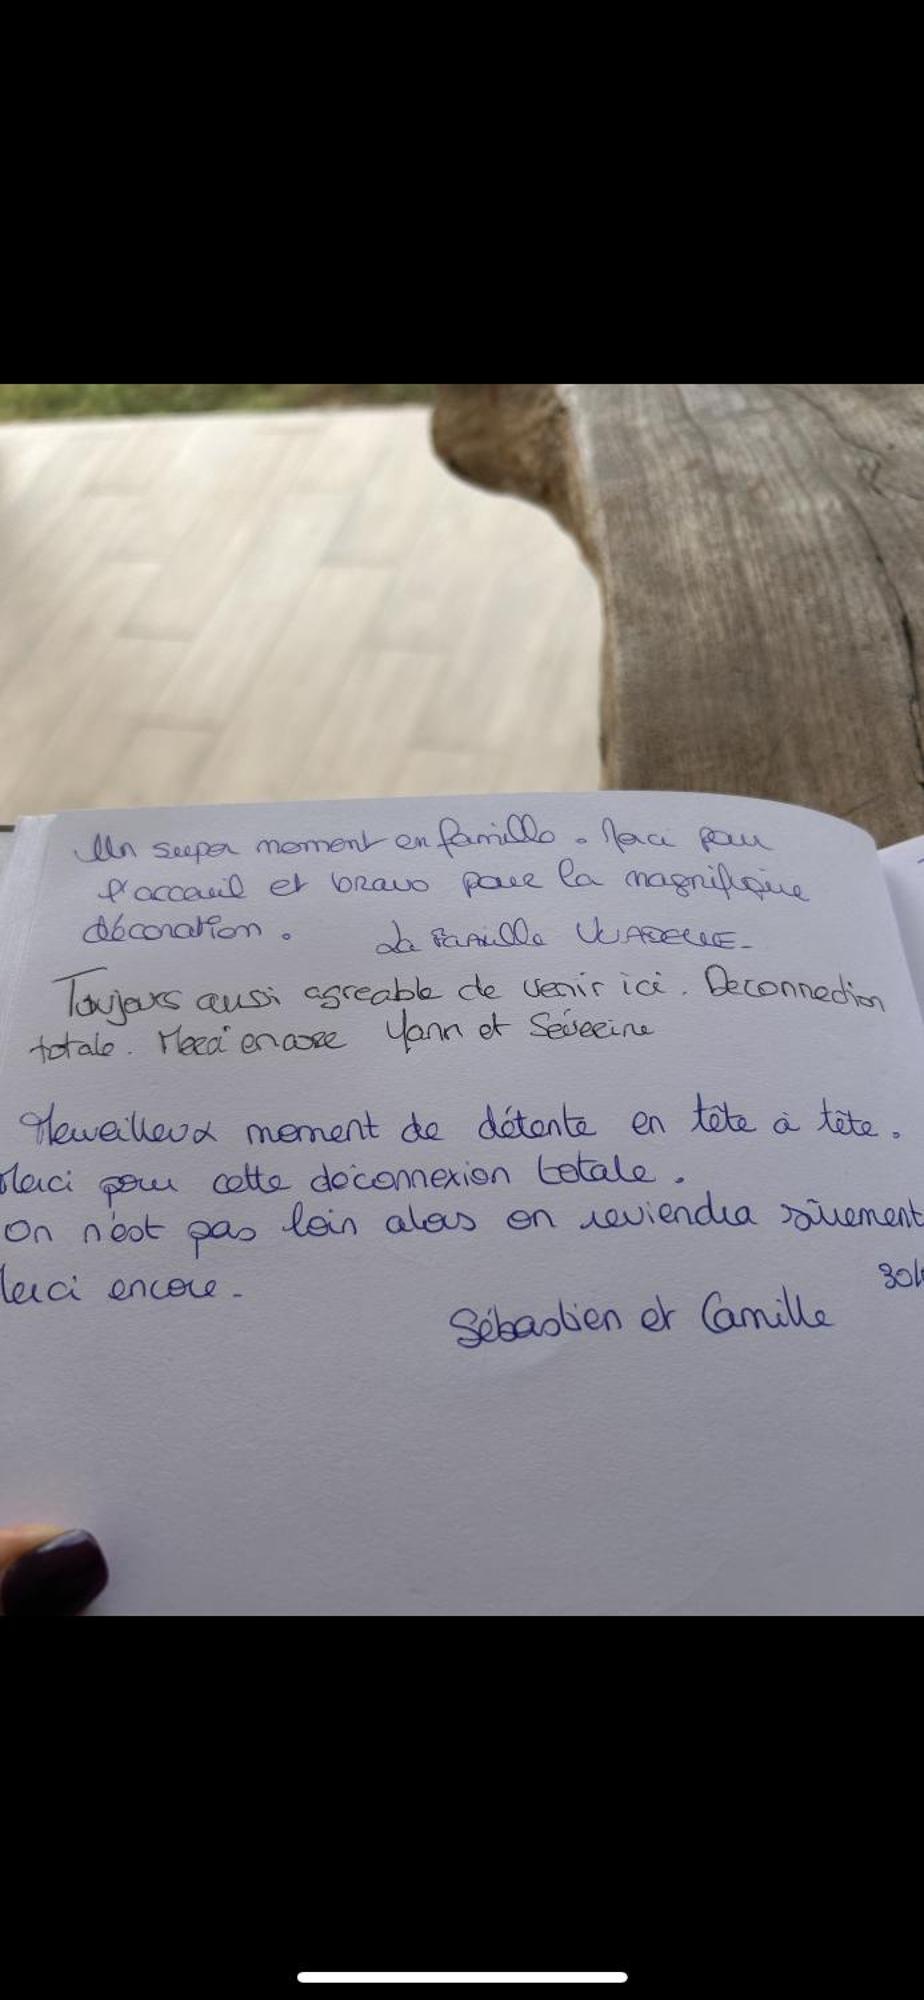 Un super moment en famille. Merci pour
l'accueil et bravo pour la magnifique
décoration. La famille VUADELLE-
Toujours aussi agreable de venir ici. Deconnection
totale. Merci encore Yann et Séverine
Merveilleux moment de détente en tête à tête.
Merci pour cette déconnexion totale.
On n'est pas loin alors on reviendra sûrement
Merci encore-
Sébastien et Camille